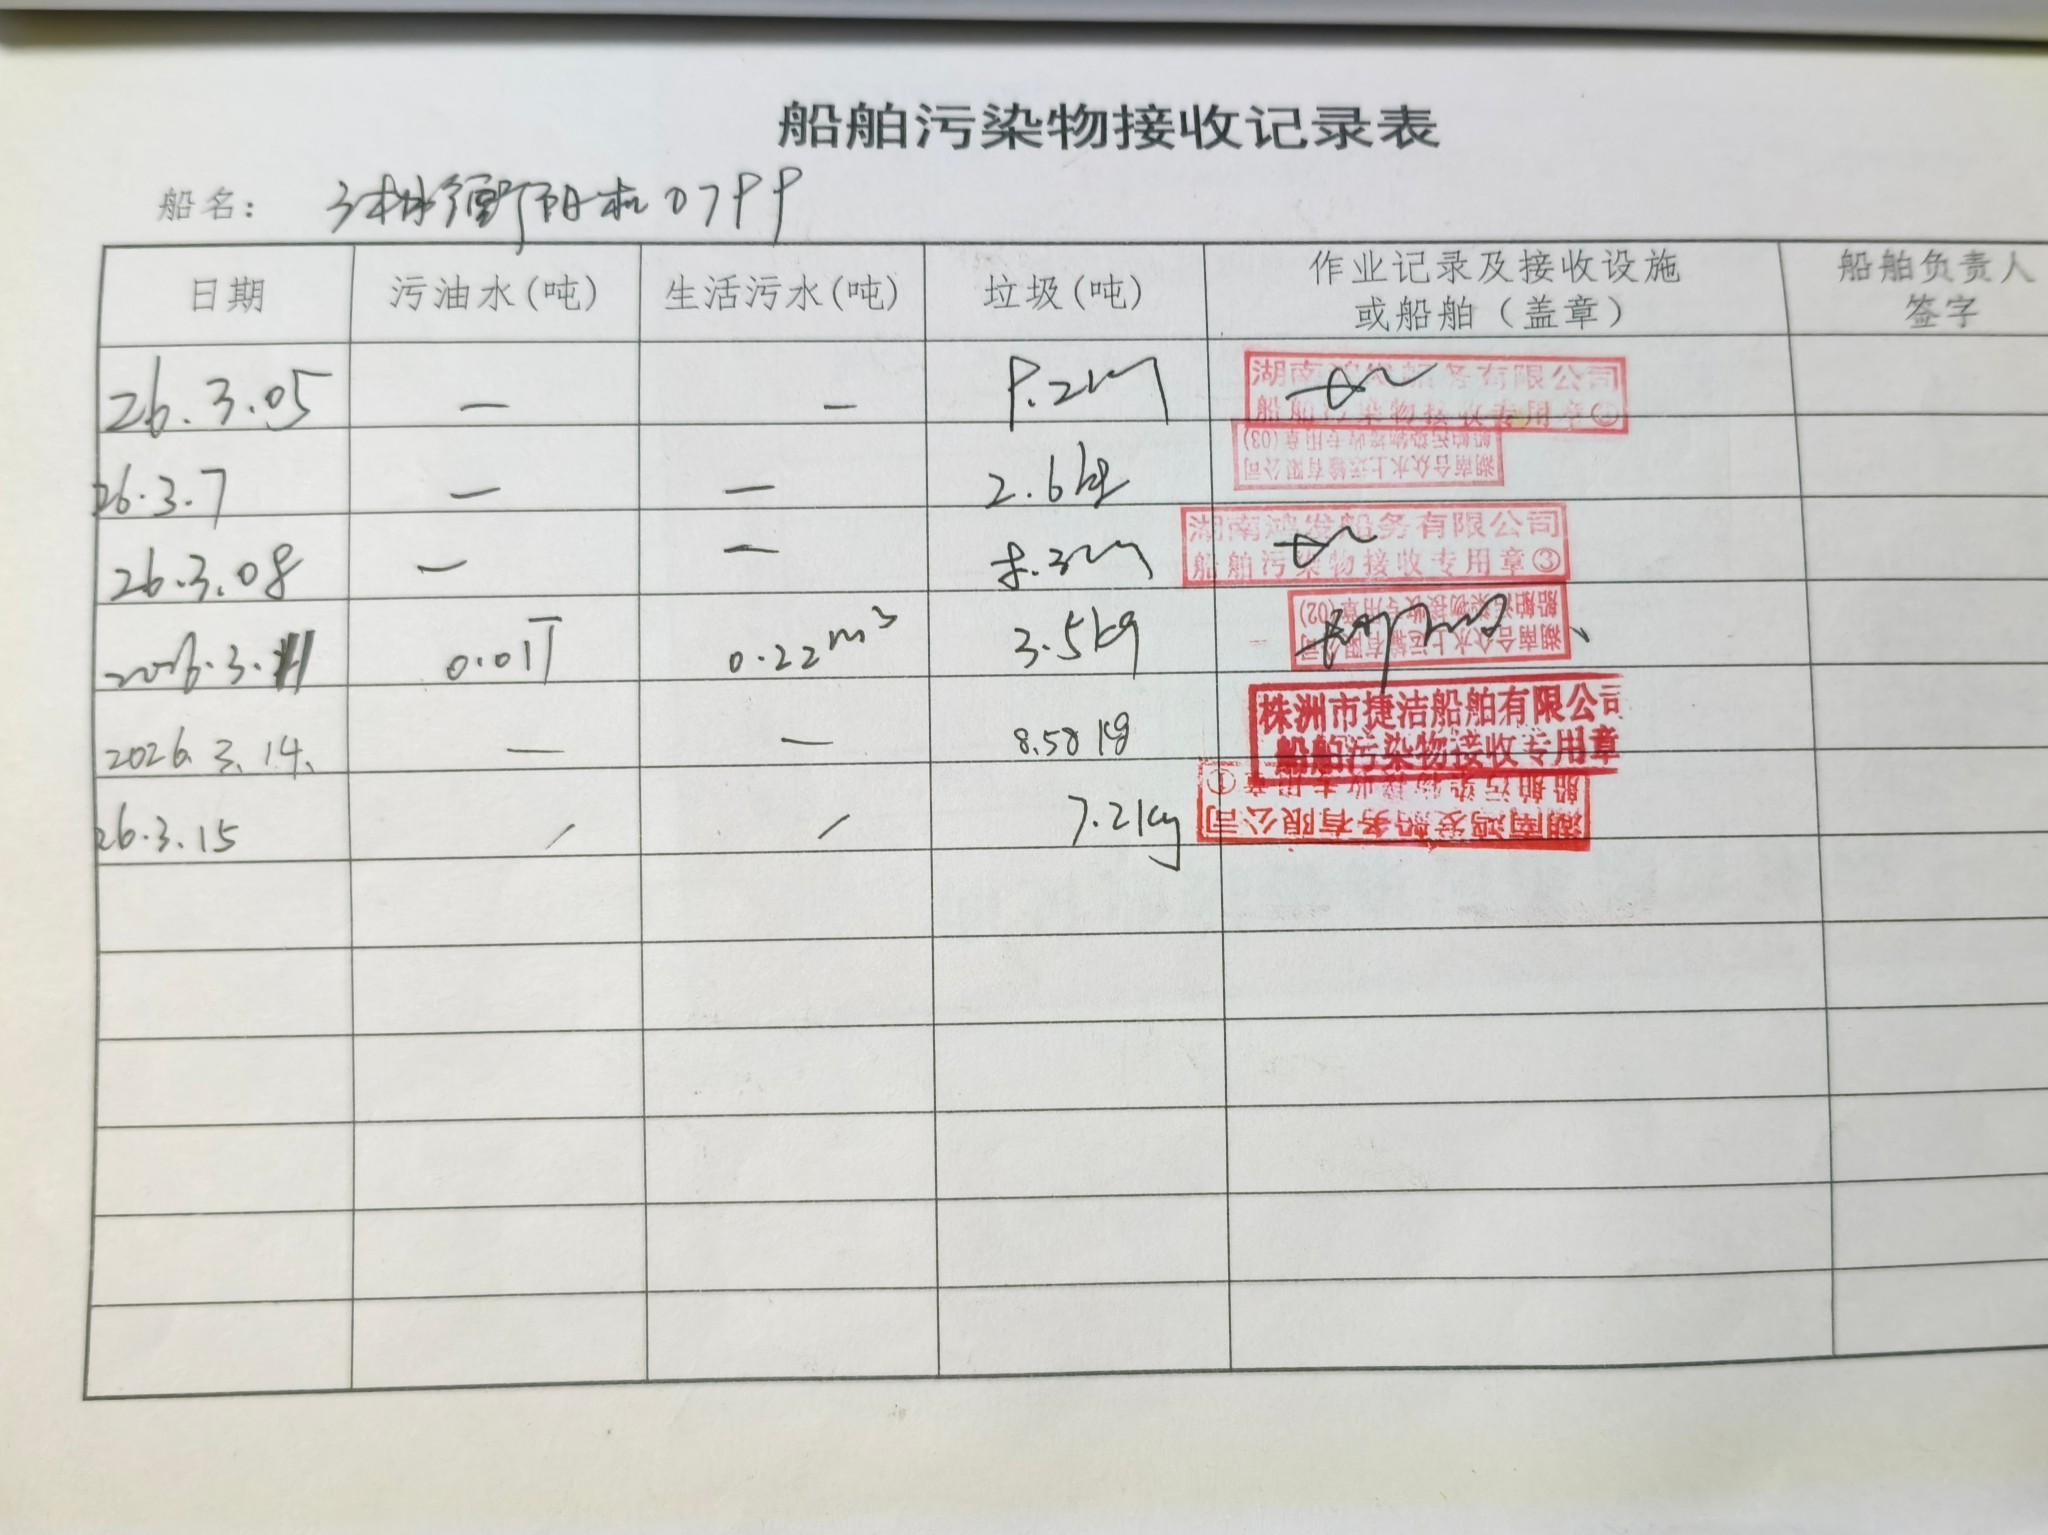 船舶污染物接收记录表
船名: 衡阳机07
日期 污油水(吨) 生活污水(吨) 垃圾(吨) 作业记录及接收设施 船舶负责人
或船舶（盖章） 签字
26.3.05 — — .2 湖南鸿发船务有限公司
船舶污染物接收专用章
26.3.7 — — 2.6kg 船舶污染物接收专用章(03)
湖南合众水上运输有限公司
26.3.08 — — .3 湖南鸿发船务有限公司
船舶污染物接收专用章③
2026.3.11 0.01T 0.22m³ 3.5kg 船舶污染物接收专用章(02)
湖南合众水上运输有限公司
2026.3.14. — — 8.58kg 株洲市捷洁船舶有限公司
船舶污染物接收专用章
26.3.15 / / 7.2kg 船舶污染物接收专用章①
湖南鸿发船务有限公司